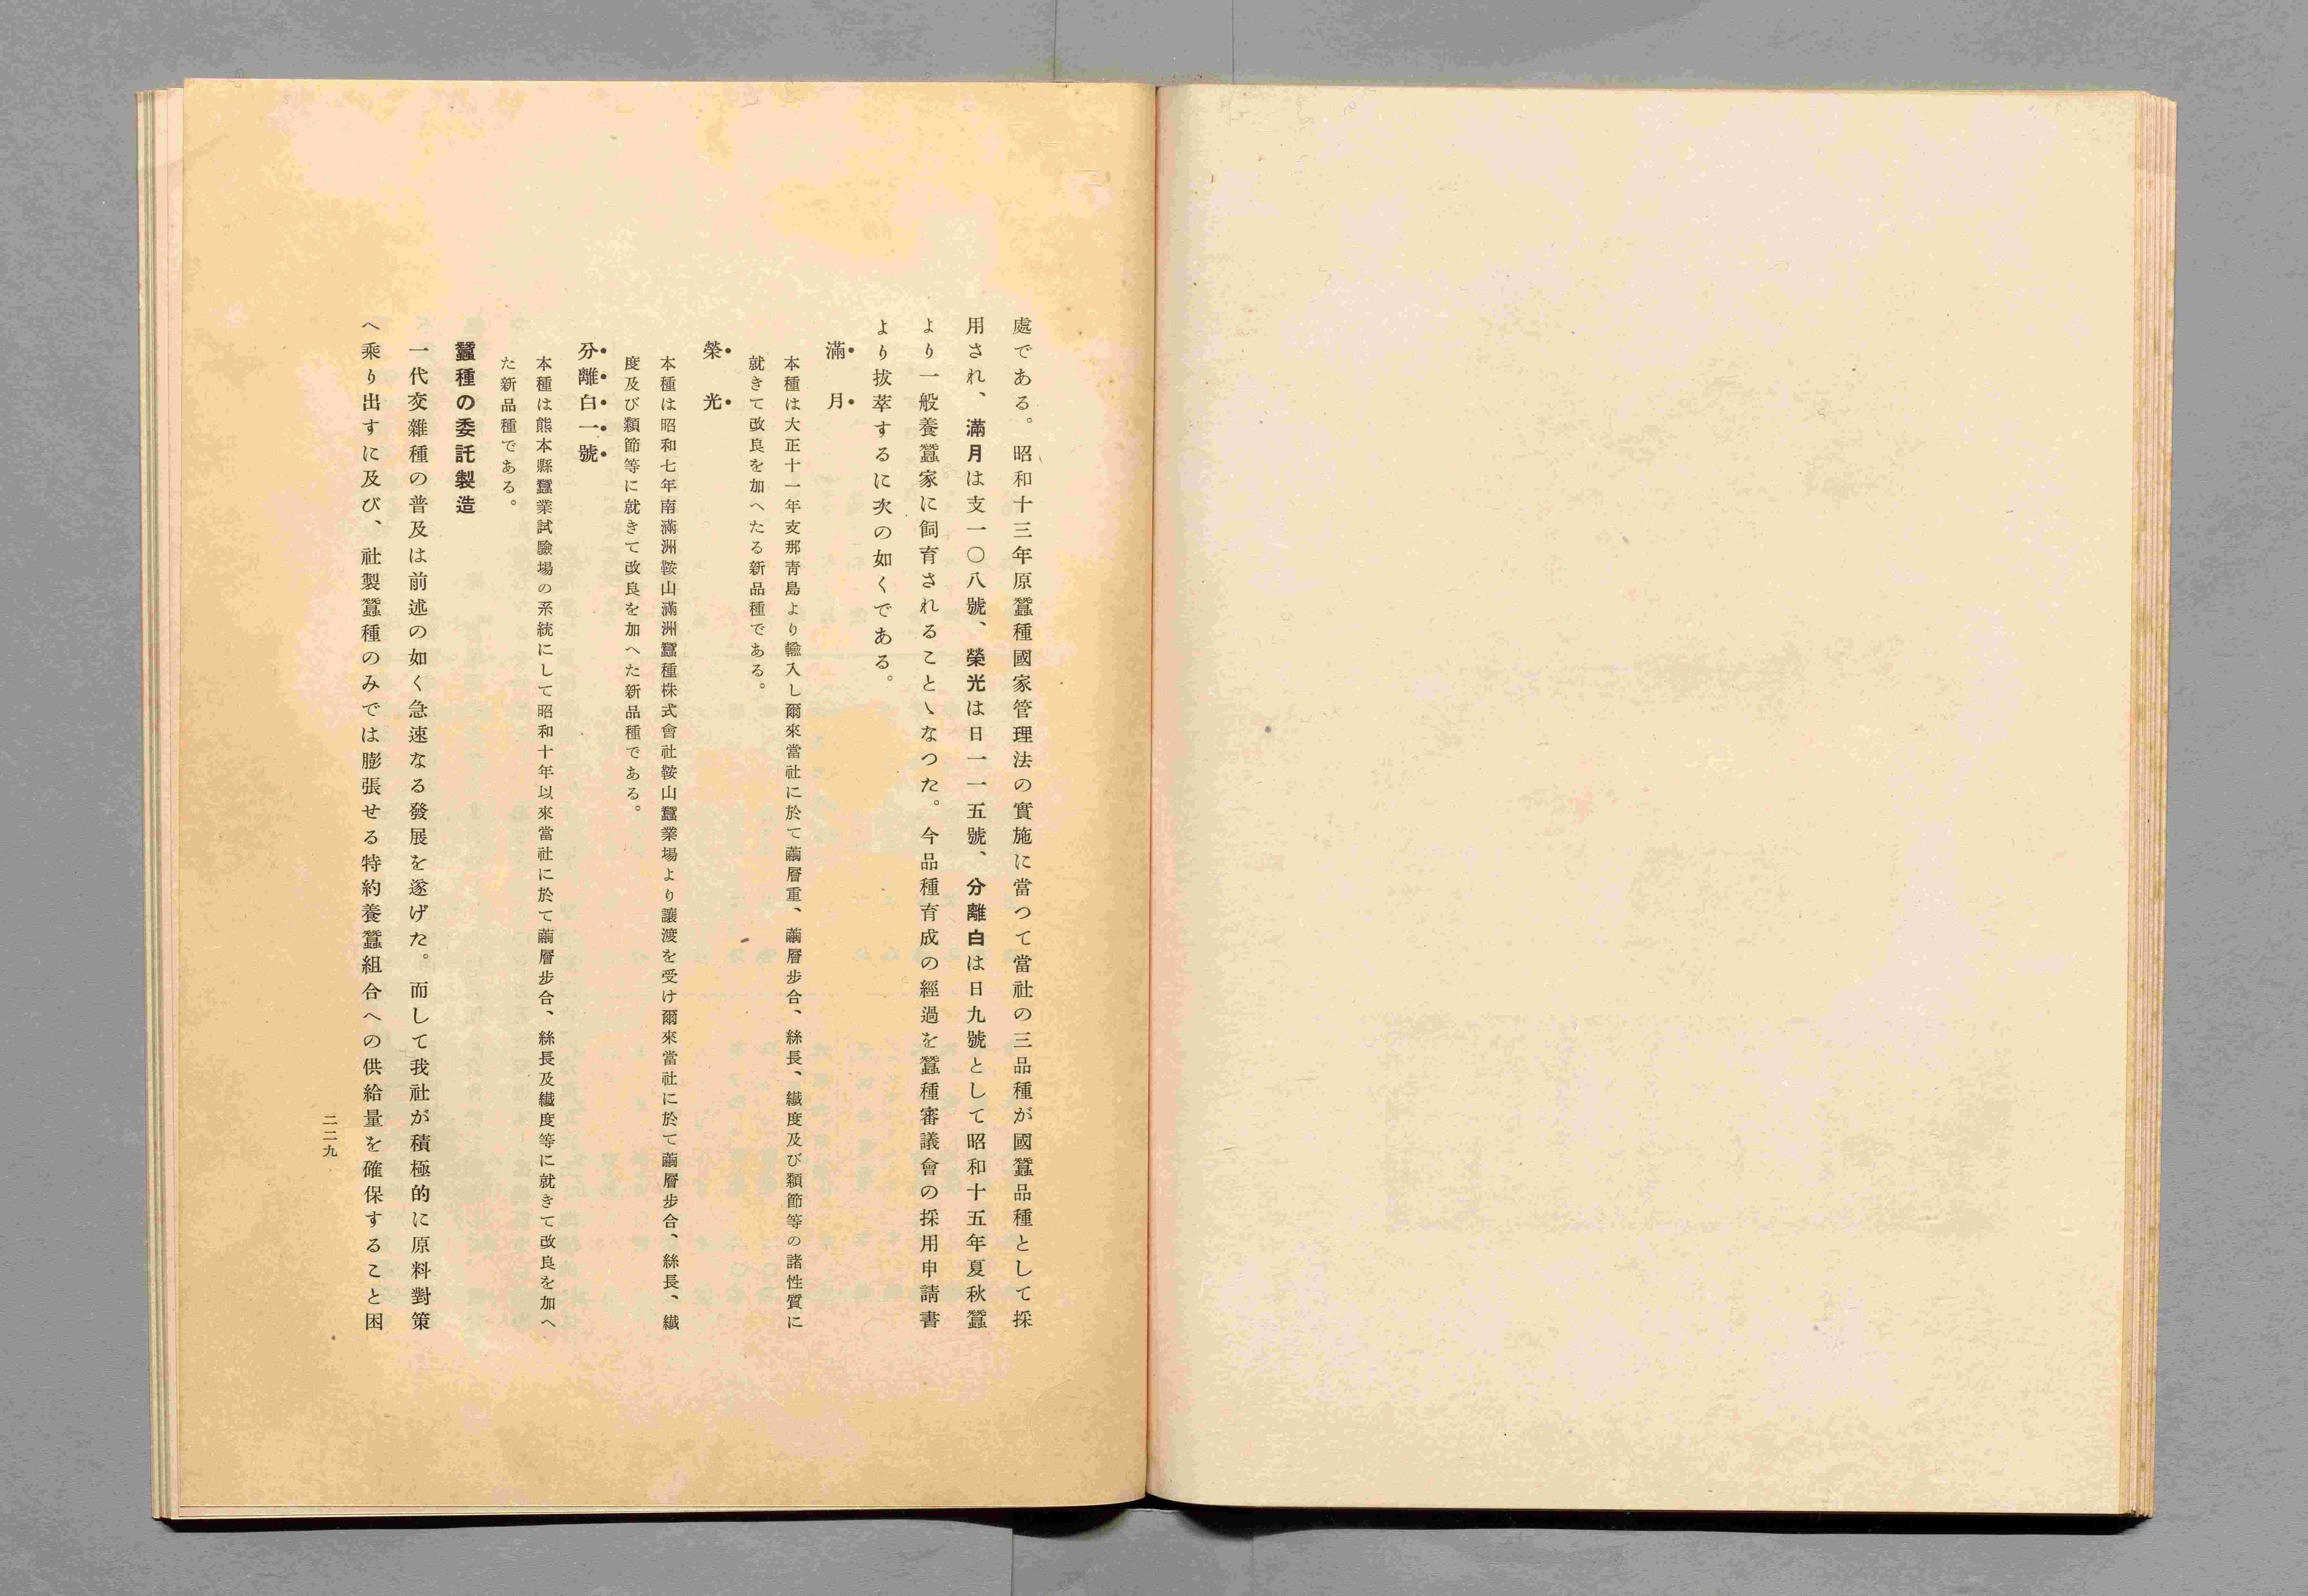 處である。昭和十三年原蠶種國家管理法の實施に當つて當社の三品種が國蠶品種として採
用され、滿月は支一〇八號、榮光は日一一五號、分離白は日九號として昭和十五年夏秋蠶
より一般養蠶家に飼育されることゝなつた。今品種育成の經過を蠶種審議會の採用申請書
より拔萃するに次の如くである。
滿月
本種は大正十一年支那靑島より輸入し爾來當社に於て繭層重、繭層步合、絲長、纎度及び類節等の諸性質に
就きて改良を加へたる新品種である。
榮光
本種は昭和七年南滿洲鞍山滿洲蠶種株式會社鞍山蠶業場より讓渡を受け爾來當社に於て繭層步合、絲長、纎
度及び類節等に就きて改良を加へた新品種である。
分離白一號
本種は熊本縣蠶業試驗場の系統にして昭和十年以來當社に於て繭層步合、絲長及纎度等に就きて改良を加へ
た新品種である。
蠶種の委託製造
一代交雜種の普及は前述の如く急速なる發展を遂げた。而して我社が積極的に原料對策
へ乘り出すに及び、社製蠶種のみでは膨張せる特約養蠶組合への供給量を確保すること困
二二九